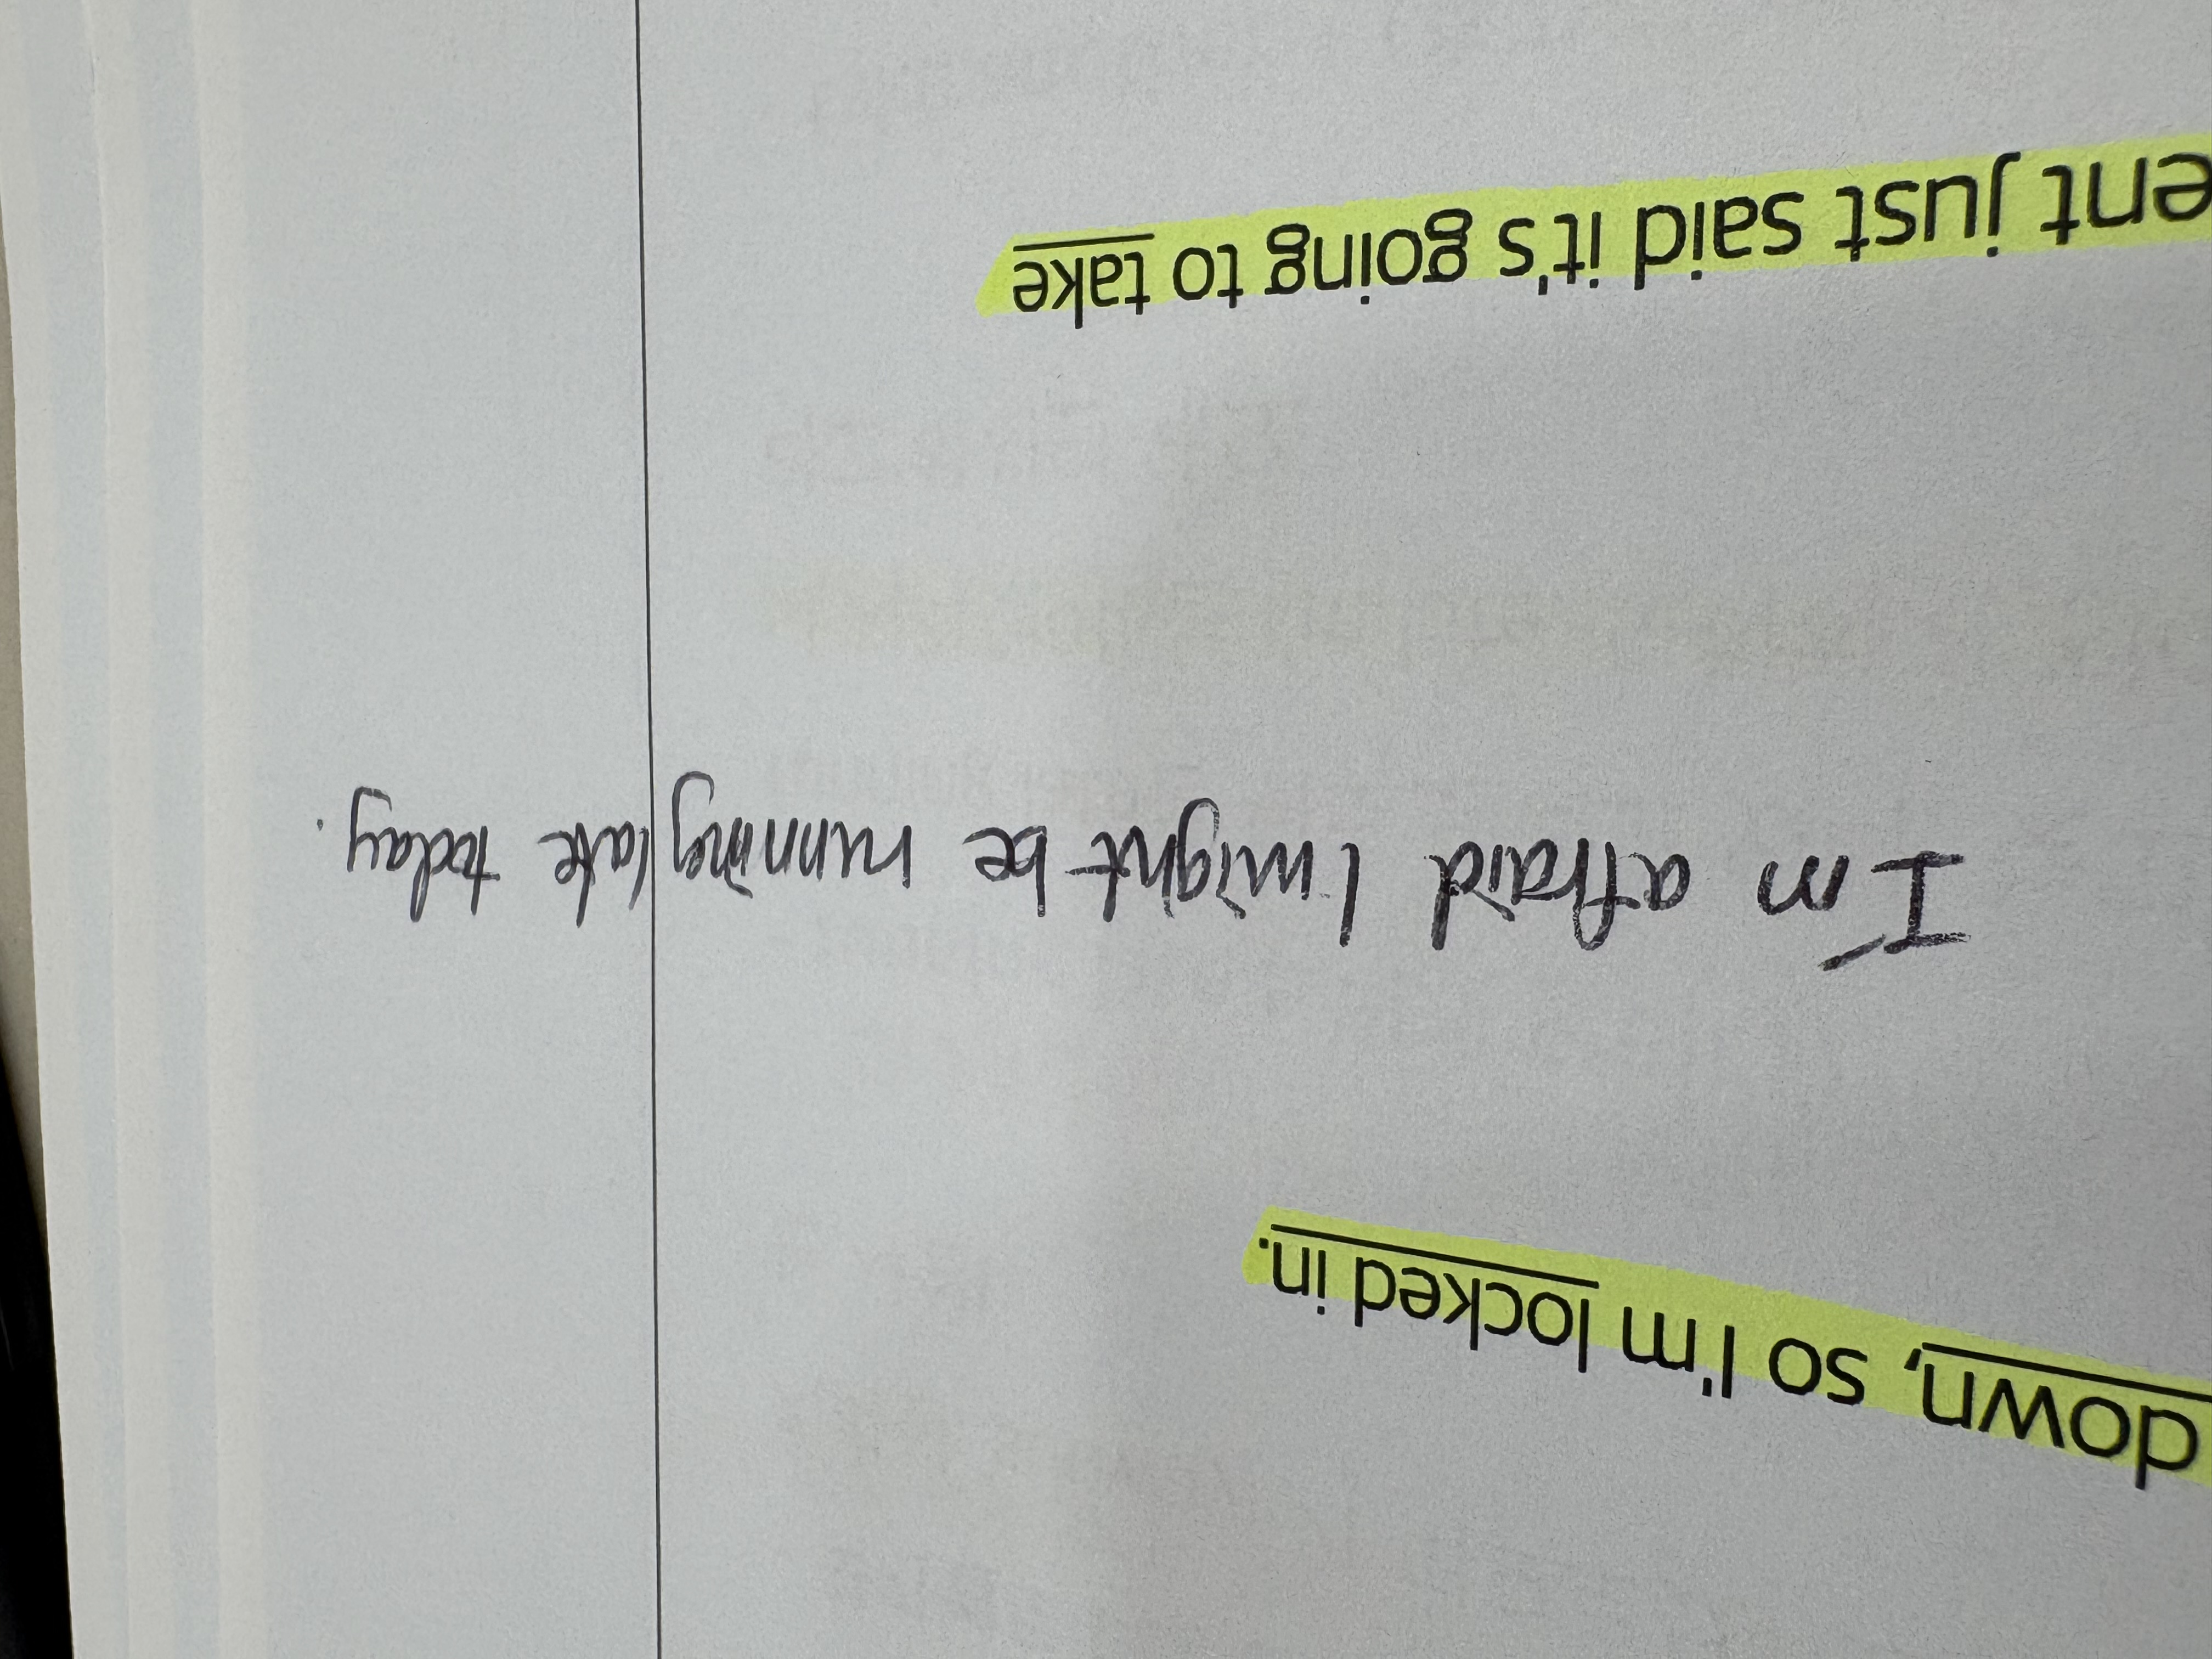 down, so I'm locked in.
I'm afraid I might be running late today.
ent just said it's going to take